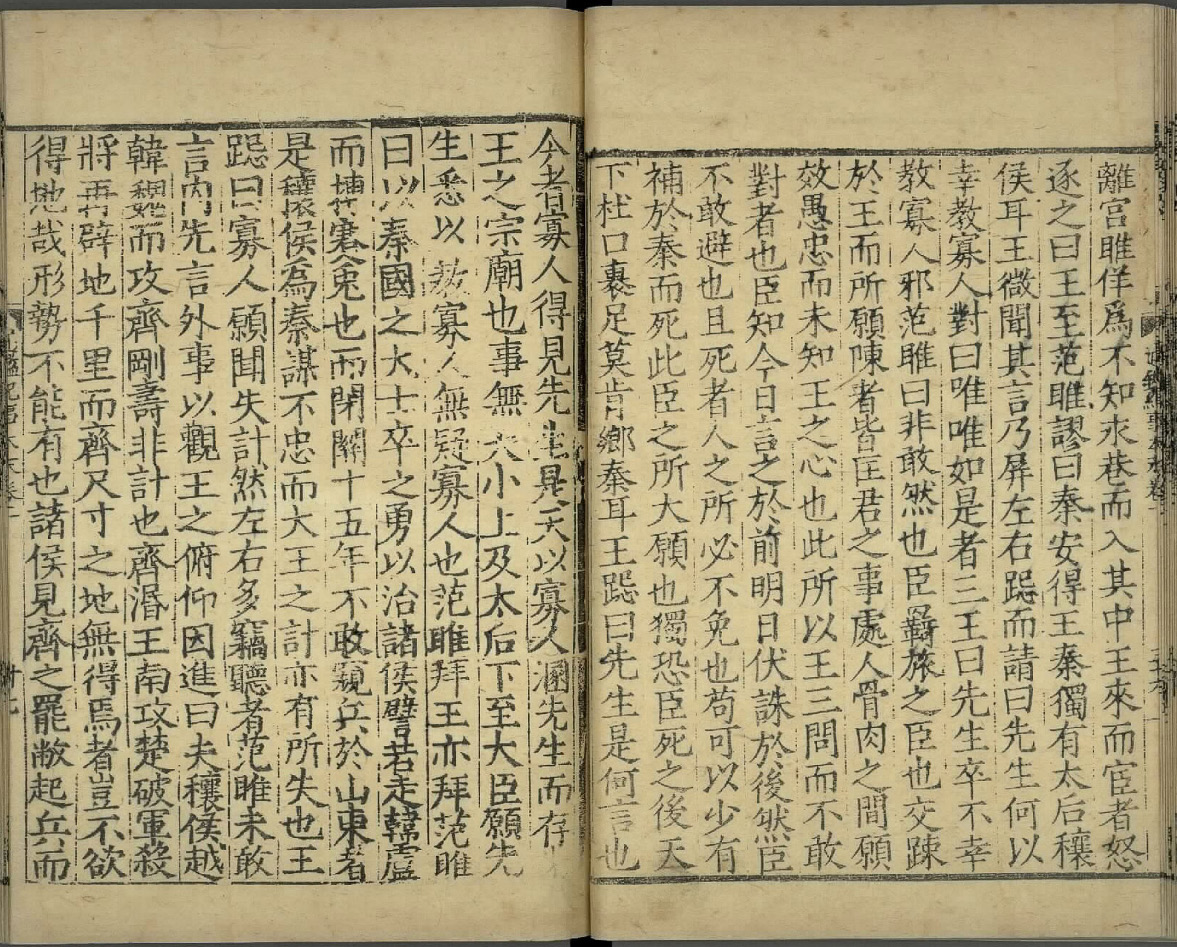 離宮睢佯為不知永巷而入其中王來而宦者怒
逐之曰王至范睢謬曰秦安得王秦獨有太后穰
侯耳王微聞其言乃屏左右跽而請曰先生何以
幸教寡人對曰唯唯如是者三王曰先生卒不幸
教寡人邪范睢曰非敢然也臣羇旅之臣也交踈
於王而所願陳者皆匡君之事處人骨肉之間願
效愚忠而未知王之心也此所以王三問而不敢
對者也臣知今日言之於前明日伏誅於後然臣
不敢避也且死者人之所必不免也苟可以少有
補於秦而死此臣之所大願也獨恐臣死之後天
下杜口裹足莫肯鄉秦耳王跽曰先生是何言也
今者寡人得見先生是天以寡人溷先生而存
王之宗廟也事無大小上及太后下至大臣願先
生悉以教寡人無疑寡人也范睢拜王亦拜范睢
曰以秦國之大士卒之勇以治諸侯譬若走韓盧
而搏蹇兔也而閉關十五年不敢窺兵於山東者
是穰侯為秦謀不忠而大王之計亦有所失也王
跽曰寡人願聞失計然左右多竊聽者范睢未敢
言內先言外事以觀王之俯仰因進曰夫穰侯越
韓魏而攻齊剛壽非計也齊湣王南攻楚破軍殺
將再辟地千里而齊尺寸之地無得焉者豈不欲
得地哉形勢不能有也諸侯見齊之罷敝起兵而